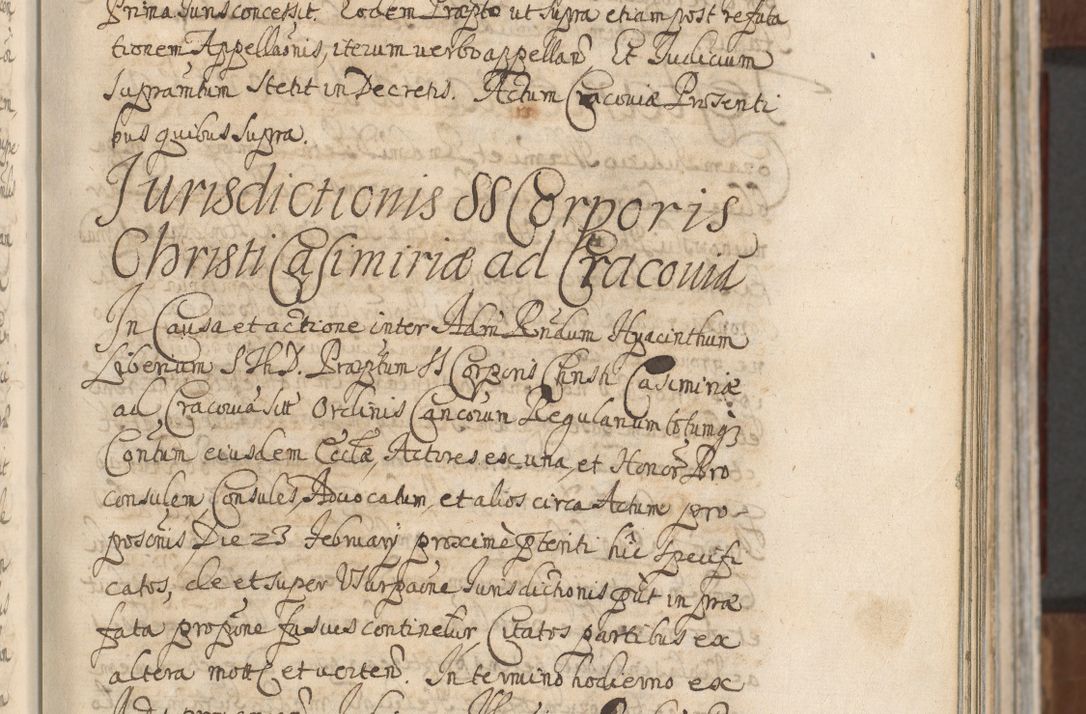 Prima Juris concessit. Eodem Præpto ut supra etiam post refuta
tionem Appellaonis, iterum verbo appellan. Et Judicium
supramtum stetit in Decretis. Actum Cracoviæ Præsenti
bus quibus supra.
Jurisdictionis SS Corporis
Christi Casimiriæ ad Cracoviã
In Causa et actione inter Adm Rndum Hyacinthum
Liberium S Th D. Præptum SS Corporis Christi Casimiriæ
ad Cracoviã sitt Ordinis Cancorum Regularium totumq3
Contum eiusdem Ecclæ, Actores ex una, et Honor Pro
consulem, Consules, Advocatum, et alios circa Actum pro-
poscnis Die 23 Februarij proxime pteriti hic specifi
catos, de et super Usurpaone Jurisdictionis put in præ
fata propone fusius continetur Citatos partibus ex
altera mott et verten. In termino hodierno ex